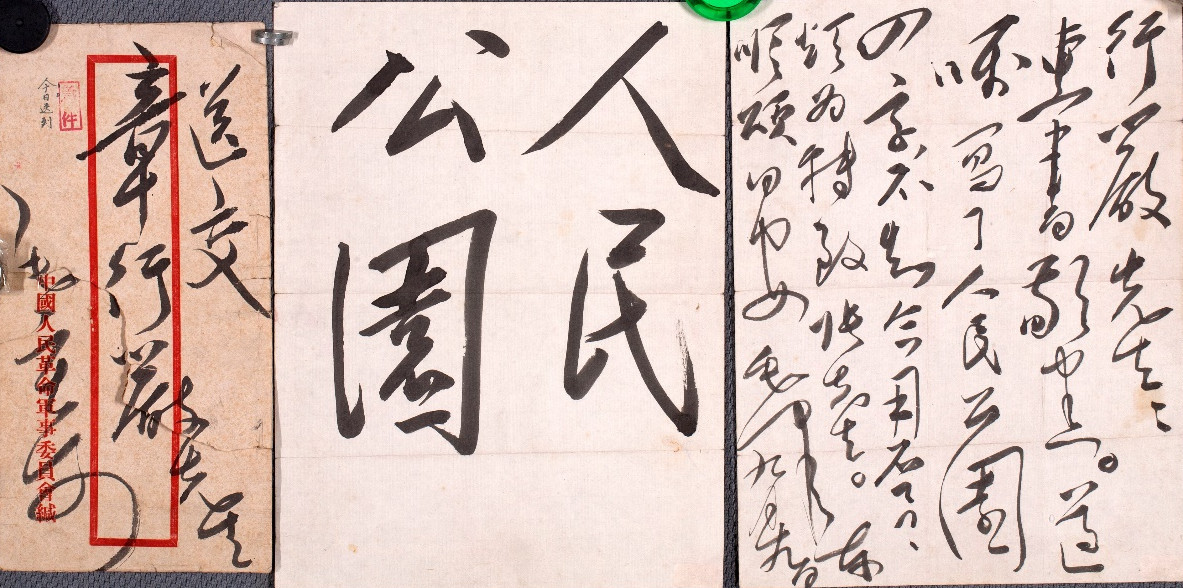 行嚴先生：
惠書敬悉。遵
囑寫了人民公園
四字不知合用否？
煩為轉致張先生。
順頌
毛澤東
人民
公園
送交
章行嚴先生
中國人民革命軍事委員會緘
件
今日送到